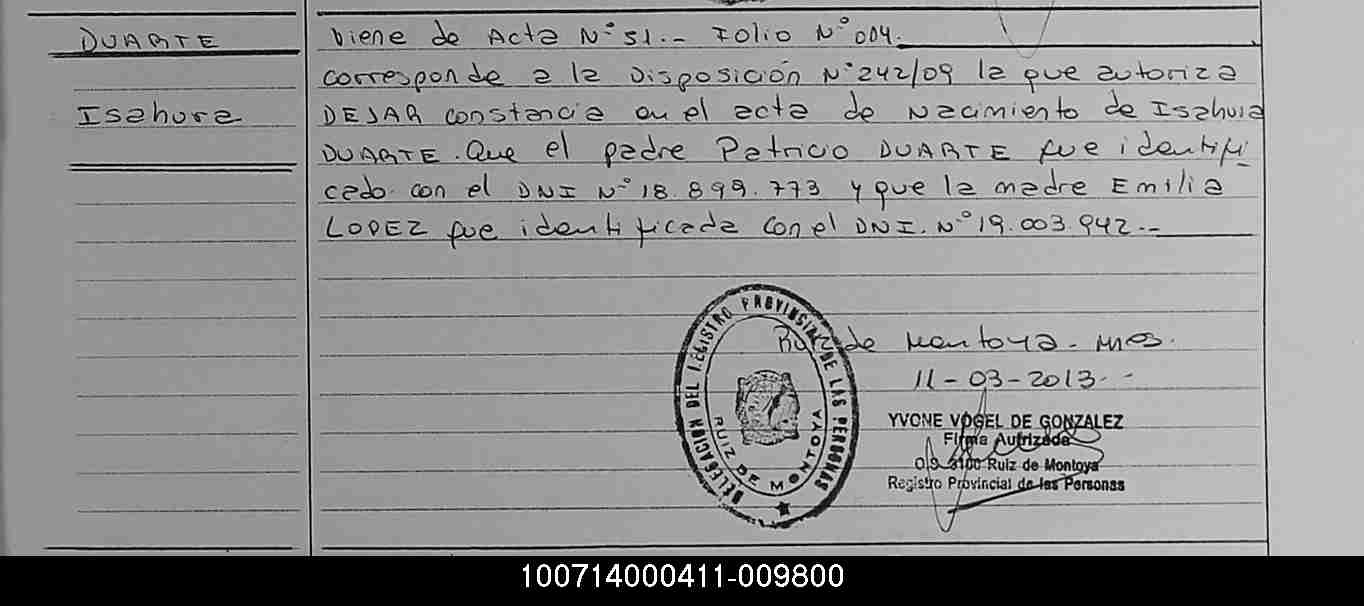 DUARTE
Isahura
Viene de Acta N° 51.- Folio N° 004.
corresponde a la Disposición N° 242/09 la que autoriza
DEJAR constancia en el acta de nacimiento de Isahura
DUARTE. Que el padre Patricio DUARTE fue identifi
cado con el DNI N° 18.899.773 y que la madre Emilia
LOPEZ fue identificada con el DNI. N° 19.003.942.-
DELEGACION DEL REGISTRO PROVINSIAL DE LAS PERSONAS
RUIZ DE MONTOYA
Ruiz de Montoya - Mnes.
11-03-2013.-
YVONE VOGEL DE GONZALEZ
Firma Autrizada
O.9 3100 Ruiz de Montoya
Registro Provincial de las Personas
100714000411-009800